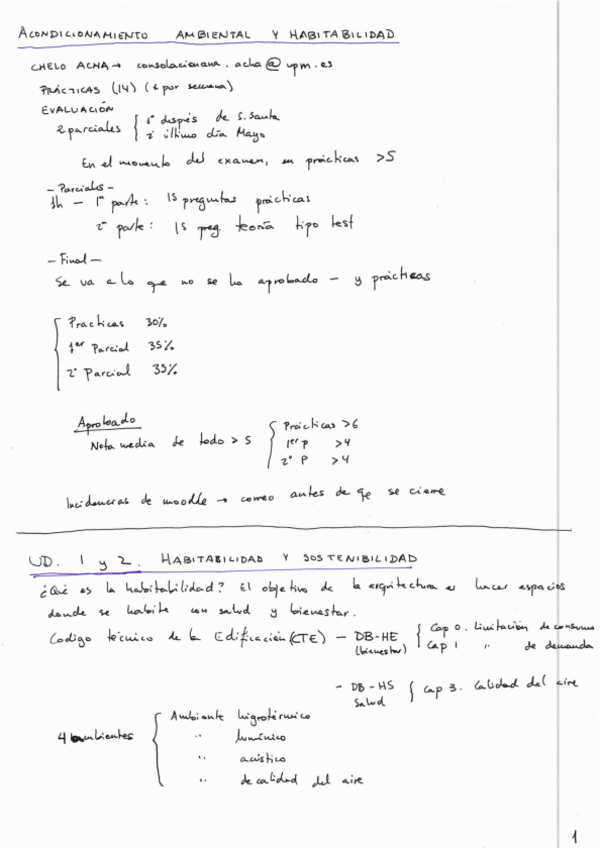 ACONDICIONAMIENTO AMBIENTAL Y HABITABILIDAD
CHELO ACHA → consolacionana.acha@upm.es
PRÁCTICAS (14) (1 por semana)
EVALUACIÓN
2 parciales { 1º después de S. Santa
2º último día Mayo
En el momento del examen, en prácticas >5
- Parciales -
1h - 1ª parte: 15 preguntas prácticas
2ª parte: 15 preg. teoría tipo test
- Final -
Se va a lo que no se ha aprobado - y prácticas
{ Practicas 30%
1er Parcial 35%
2º Parcial 35%
Aprobado
Nota media de todo > 5 { Prácticas >6
1er P >4
2º P >4
Incidencias de moodle → correo antes de qe se cierre
UD. 1 y 2. HABITABILIDAD Y SOSTENIBILIDAD
¿Qué es la habitabilidad? El objetivo de la arquitectura es hacer espacios
donde se habite con salud y bienestar.
Codigo técnico de la Edificación (CTE) - DB-HE (bienestar) { Cap 0. Limitación de consumo
Cap 1 " de demanda
- DB-HS Salud { Cap 3. Calidad del aire
4 ambientes { Ambiente higrotérmico
" lumínico
" acústico
" de calidad del aire
1